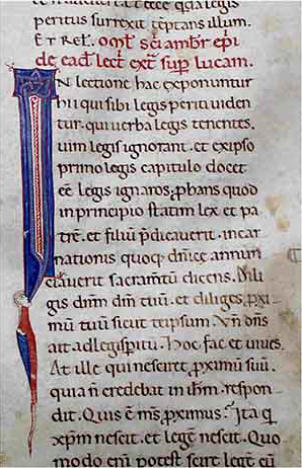 peritus surrexit teptans illum.
Et Rel̅. om̅t s̅ci ambr̅ ep̅i
de ead̅ lect̅ ext̅ sup̅ lucam.
IN lectione hac exponuntur
hii qui sibi legis periti uiden
tur. qui uerba legis tenentes.
uim legis ignorant. et ex ipso
primo legis capitulo docet
ee̅ legis ignaros; p̲bans quod
in principio statim lex et pa
tre̅. et filiu̅ p̅dicauerit. incar
nationis quoq; d̅nice annun
ciauerit sacram̅tu̅ dicens. Dili
gis dn̅m dm̅ tuu̅. et diliges p̲xi
mu̅ tuu̅ sicut teipsum. Vn̅ dn̅s
ait. ad legisp̲itu̅. Hoc fac et uiues.
At ille qui nesciret p̲ximu̅ suu̅.
quia n̅ credebat in ih̅m. respon
dit. Quis e̅ m̅s p̲ximus? Ita q̲
xp̅m nescit. et lege̅ nescit. Quo
modo eni̅ potest scire lege̅ cu̅